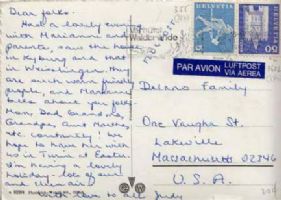 Dear folks,
Had a lovely evening
with Marianne and
parents, saw the house
in Kyburg and that
in Weisslingen. They
are such warm friendly
people, and Marianne
tells about you folks
Mom, Dad, Grandma,
Grandpa, and
etc. constantly! We
hope to have her with
us in at Easter.
I'm having a lovely
holiday. lots of sun
and clean air!
with love to all Judy
HELVETIA
HELVETIA
50
PAR AVION LUFTPOST
VIA AEREA
Delano Family
One Vaughn St.
Lakeville
Massachusetts 02346
U.S.A.